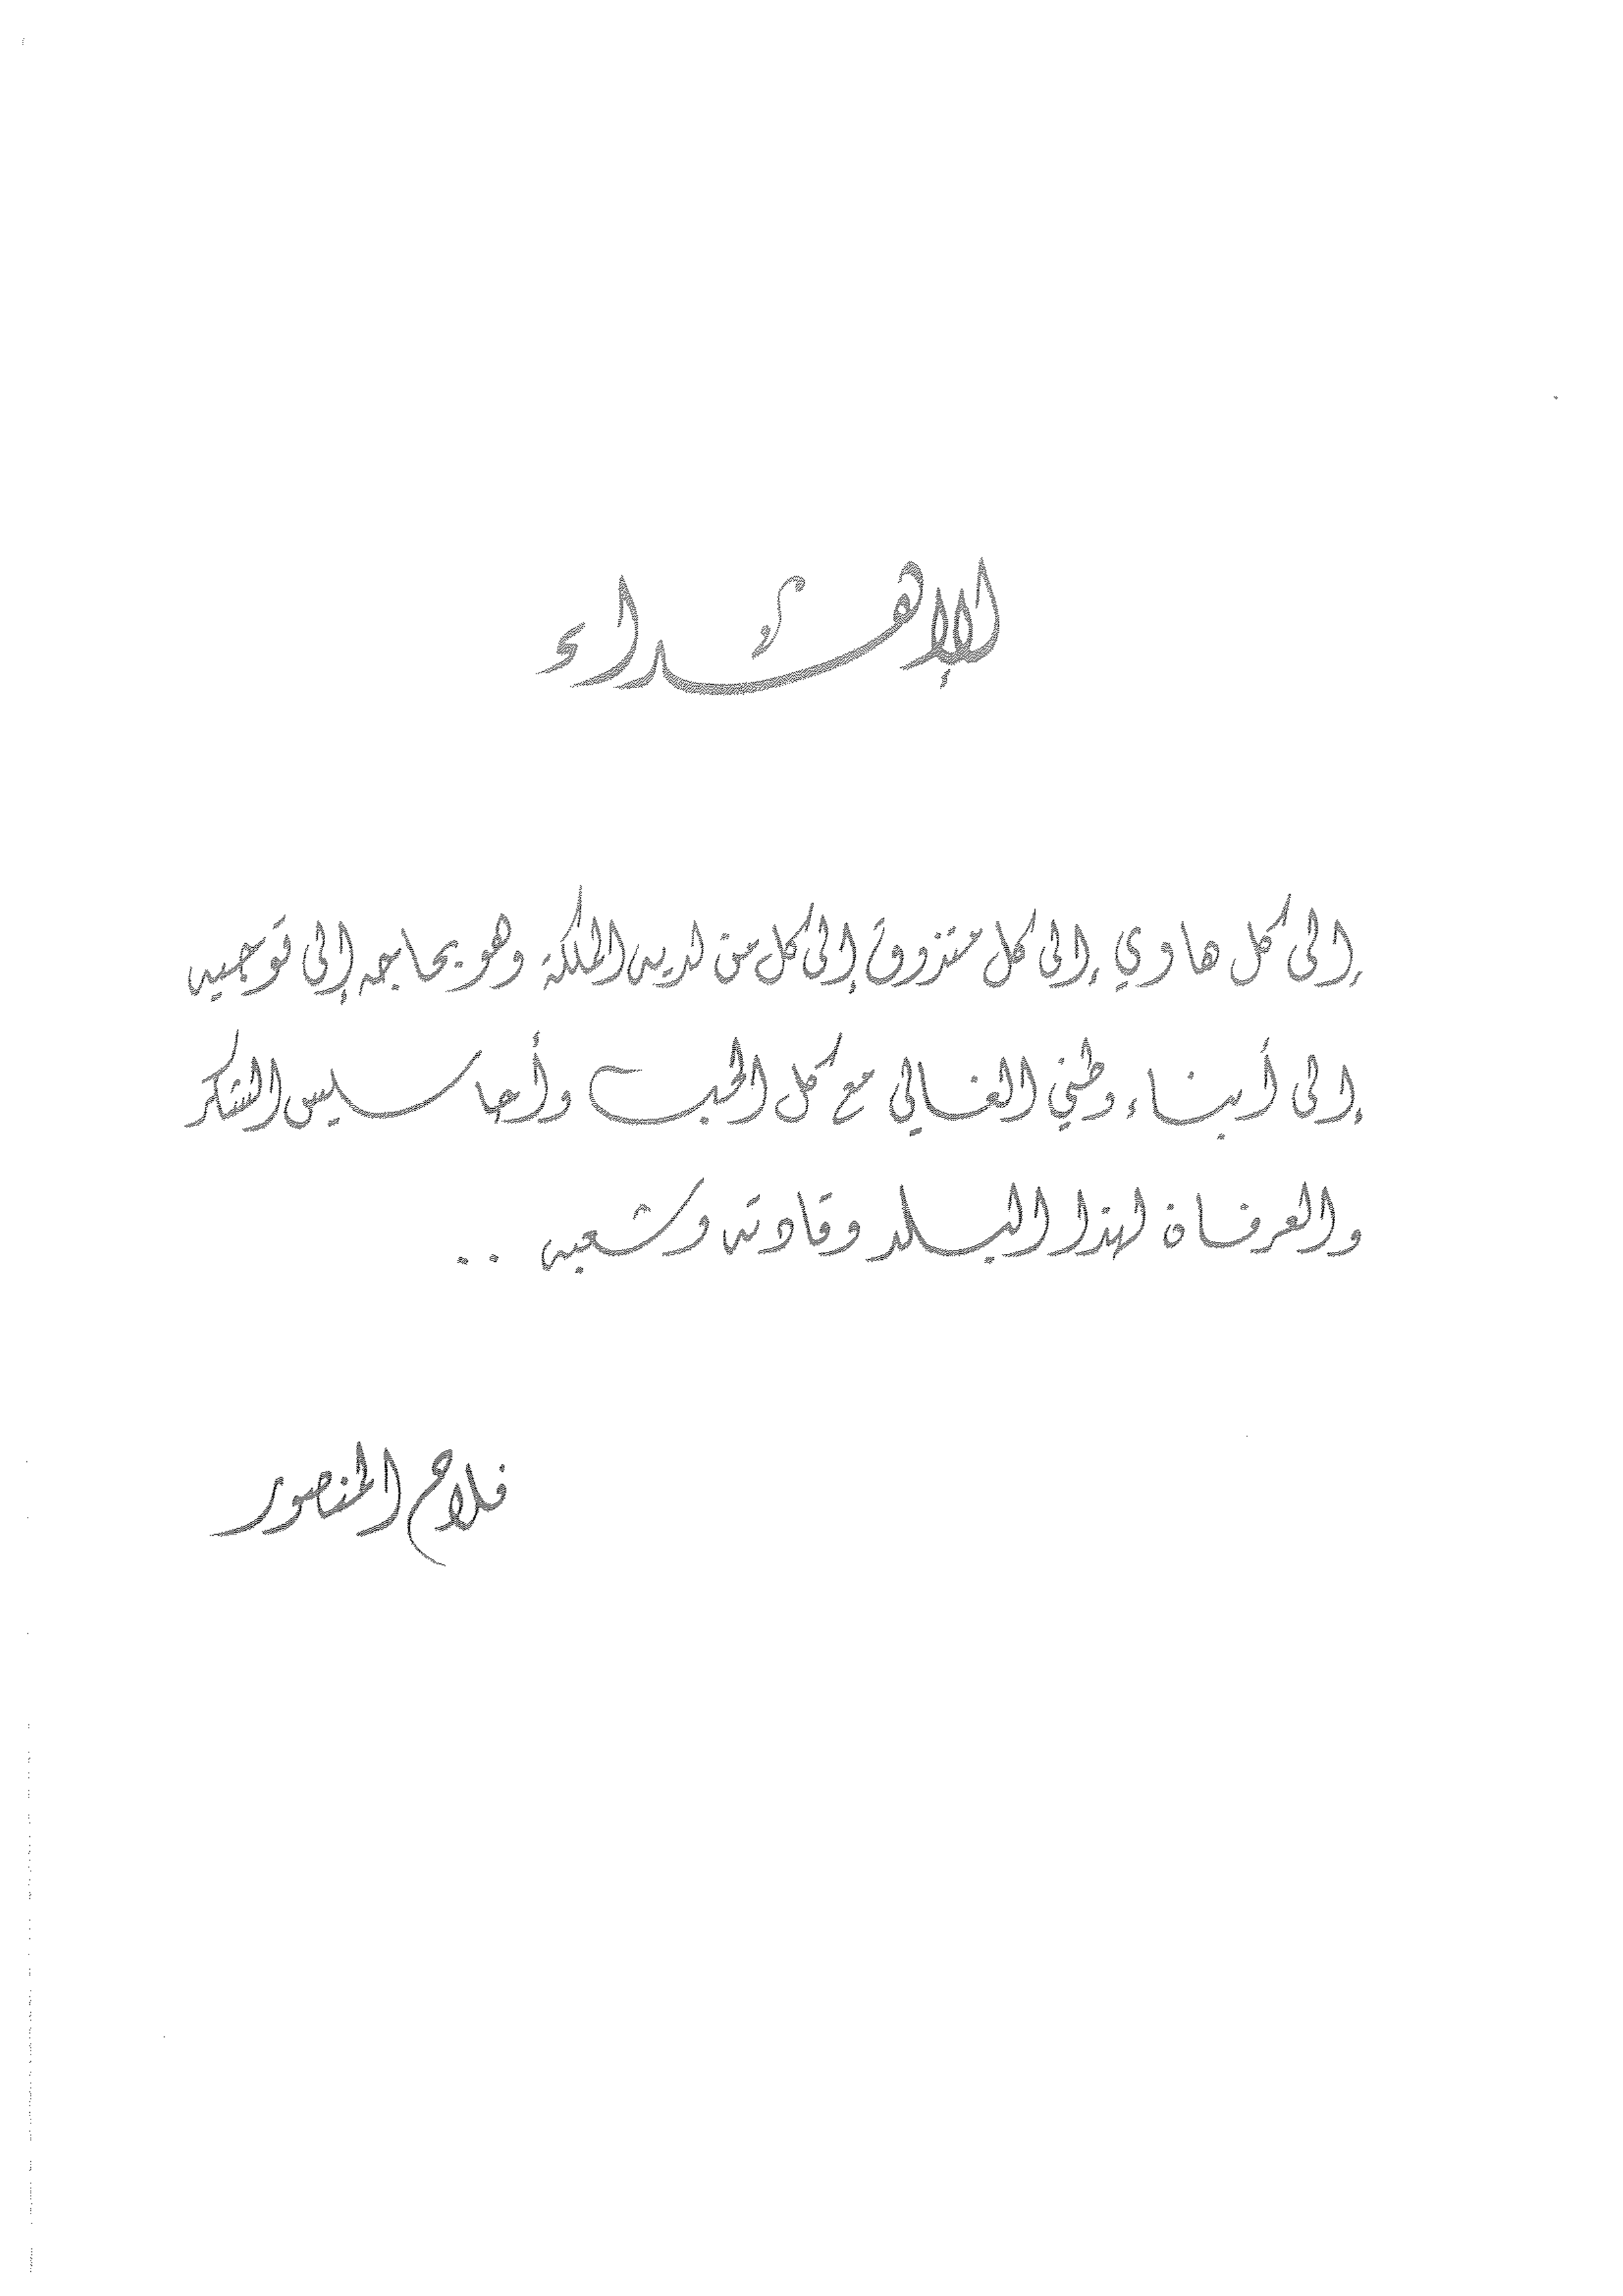 الإهداء
إلى كل هاوي إلى كل متذوق إلى كل من لديه الملكة وهو بحاجه إلى توجيه
إلى أبناء وطني الغالي مع كل الحب وأحاسيس الشكر
والعرفان لهذا البلد وقادته وشعبه ..
فلاح المنصور